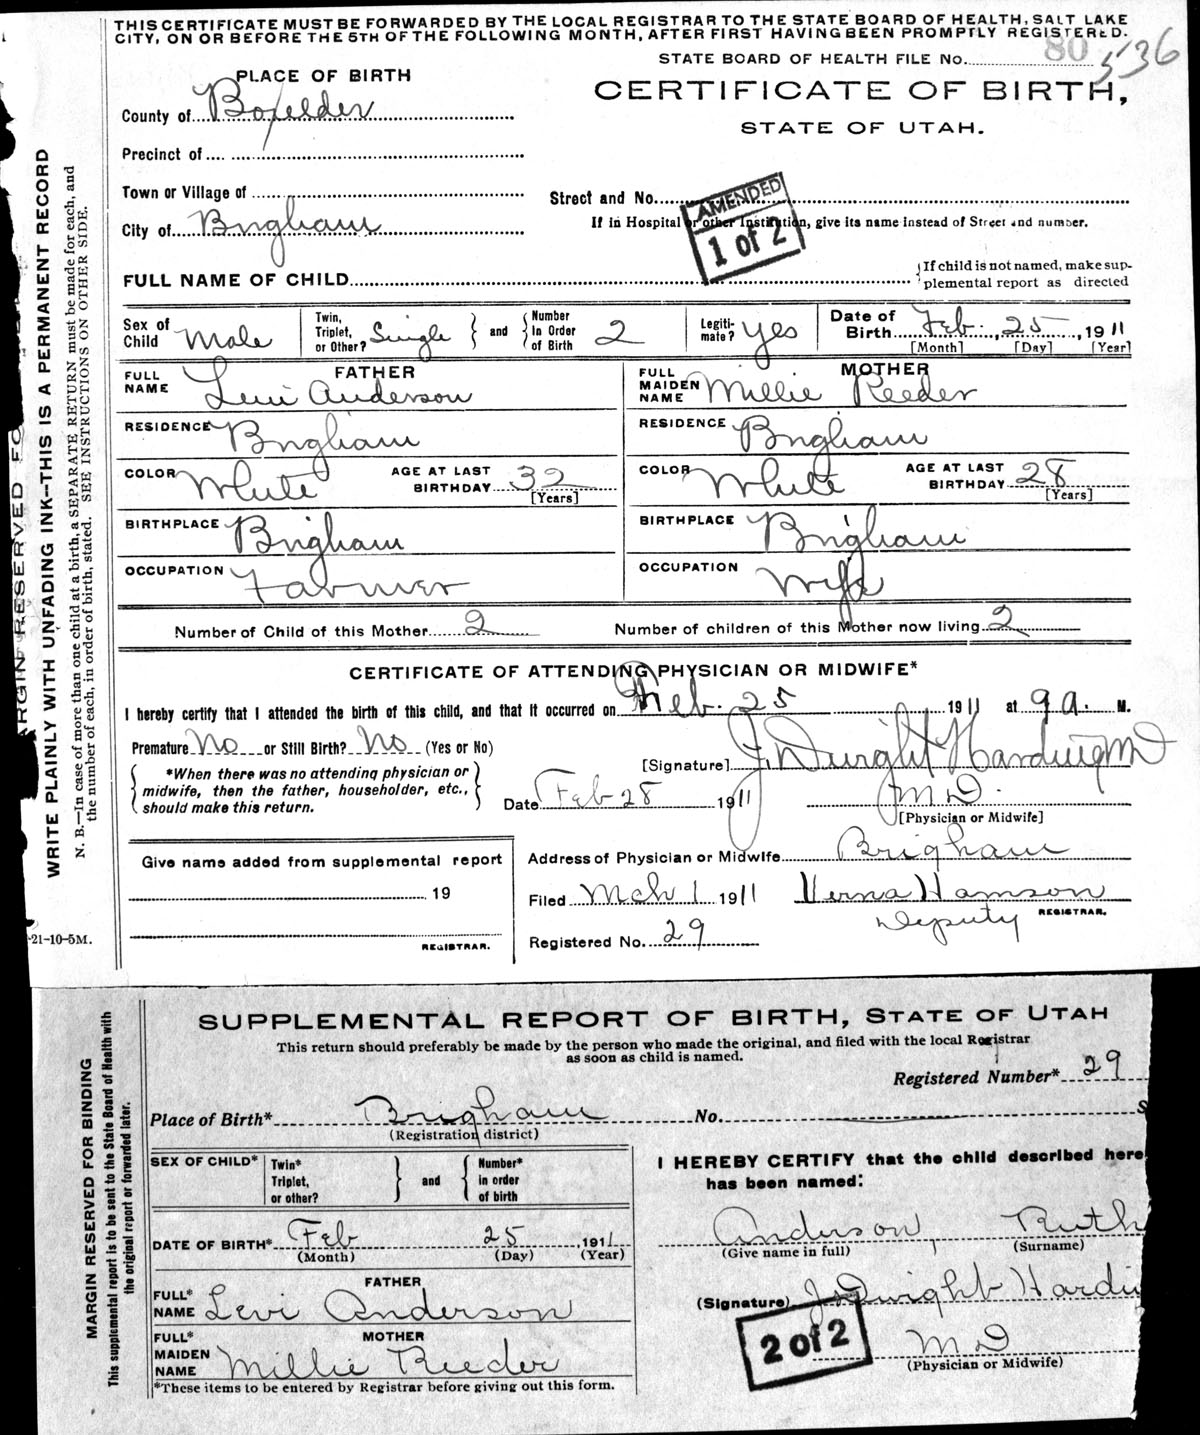 THIS CERTIFICATE MUST BE FORWARDED BY THE LOCAL REGISTRAR TO THE STATE BOARD OF HEALTH, SALT LAKE
CITY, ON OR BEFORE THE 5TH OF THE FOLLOWING MONTH, AFTER FIRST HAVING BEEN PROMPTLY REGISTERED.
STATE BOARD OF HEALTH FILE No. 80 536
PLACE OF BIRTH
CERTIFICATE OF BIRTH,
STATE OF UTAH.
County of Boxelder
Precinct of
Town or Village of
Street and No.
City of Brigham
If in Hospital or other Institution, give its name instead of Street and number.
AMENDED
1 of 2
FULL NAME OF CHILD
If child is not named, make sup-
plemental report as directed
Sex of Child Male
Twin, Triplet, or Other? Single and Number In Order of Birth 2
Legiti-mate? Yes
Date of Birth Feb. 25, 1911
[Month] [Day] [Year]
FATHER
FULL NAME Levi Anderson
MOTHER
FULL MAIDEN NAME Millie Reeder
RESIDENCE Brigham
RESIDENCE Brigham
COLOR White AGE AT LAST BIRTHDAY 32 [Years]
COLOR White AGE AT LAST BIRTHDAY 28 [Years]
BIRTHPLACE Brigham
BIRTHPLACE Brigham
OCCUPATION Farmer
OCCUPATION Wife
Number of Child of this Mother 2
Number of children of this Mother now living 2
CERTIFICATE OF ATTENDING PHYSICIAN OR MIDWIFE*
I hereby certify that I attended the birth of this child, and that it occurred on Feb. 25 1911 at 9 a. M.
Premature No or Still Birth? No (Yes or No)
[Signature] J. Dwight Harding MD
*When there was no attending physician or
midwife, then the father, householder, etc.,
should make this return.
Date Feb 28 1911
M D.
[Physician or Midwife]
Give name added from supplemental report
19
REGISTRAR.
Address of Physician or Midwife Brigham
Filed Mch 1 1911 Verna Hamson
Deputy REGISTRAR.
Registered No. 29
-21-10-5M.
MARGIN RESERVED FO
WRITE PLAINLY WITH UNFADING INK—THIS IS A PERMANENT RECORD
N. B.—In case of more than one child at a birth, a SEPARATE RETURN must be made for each, and
the number of each, in order of birth, stated. SEE INSTRUCTIONS ON OTHER SIDE.
SUPPLEMENTAL REPORT OF BIRTH, STATE OF UTAH
This return should preferably be made by the person who made the original, and filed with the local Registrar
as soon as child is named.
Registered Number* 29
Place of Birth* Brigham No. S
(Registration district)
SEX OF CHILD* Twin* Triplet, or other? and Number* in order of birth
I HEREBY CERTIFY that the child described here
has been named:
DATE OF BIRTH* Feb 25 1911
(Month) (Day) (Year)
Anderson, Ruth
(Give name in full) (Surname)
FATHER
FULL* NAME Levi Anderson
(Signature) J. Dwight Hardi
MOTHER
FULL* MAIDEN NAME Millie Reeder
2 of 2
M D
(Physician or Midwife)
*These items to be entered by Registrar before giving out this form.
MARGIN RESERVED FOR BINDING
This supplemental report is to be sent to the State Board of Health with
the original report or forwarded later.